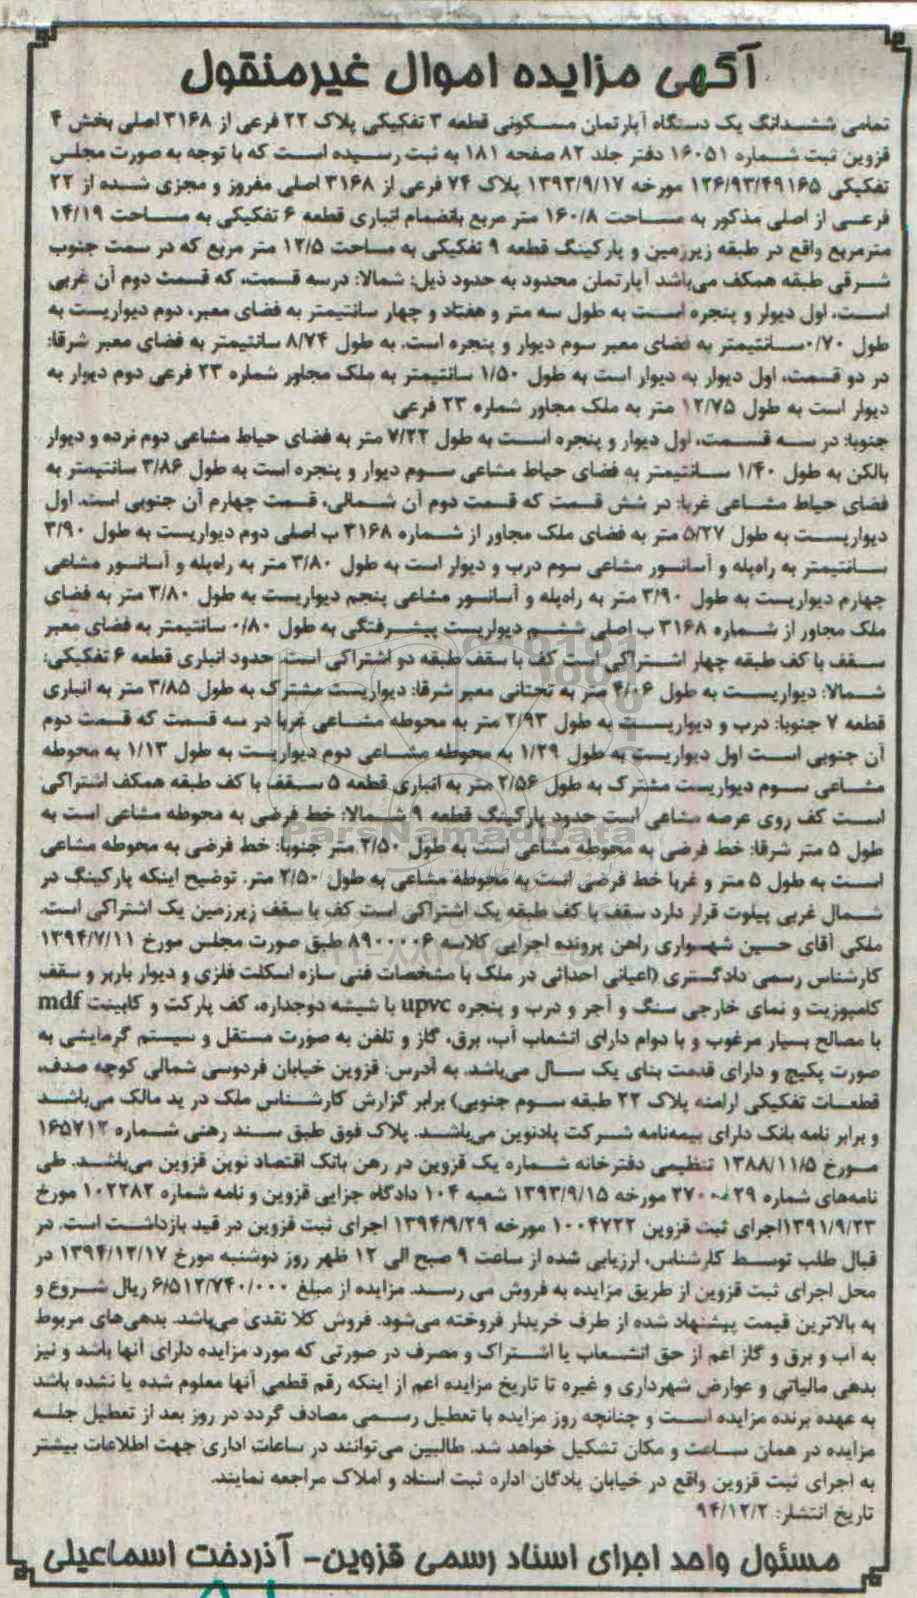 آگهی مزایده اموال غیرمنقول
تمامی ششدانگ یک دستگاه آپارتمان مسکونی قطعه ۳ تفکیکی پلاک ۲۲ فرعی از ۳۱۶۸ اصلی بخش ۴
قزوین ثبت شماره ۱۶۰۵۱ دفتر جلد ۸۲ صفحه ۱۸۱ به ثبت رسیده است که با توجه به صورت مجلس
تفکیکی ۱۲۶/۹۳/۴۹۱۶۵ مورخه ۱۳۹۳/۹/۱۷ پلاک ۷۴ فرعی از ۳۱۶۸ اصلی مفروز و مجزی شده از ۲۲
فرعی از اصلی مذکور به مساحت ۱۶۰/۸ متر مربع بانضمام انباری قطعه ۶ تفکیکی به مساحت ۱۴/۱۹
مترمربع واقع در طبقه زیرزمین و پارکینگ قطعه ۹ تفکیکی به مساحت ۱۲/۵ متر مربع که در سمت جنوب
شرقی طبقه همکف می‌باشد آپارتمان محدود به حدود ذیل: شمالا: درسه قسمت، که قسمت دوم آن غربی
است، اول دیوار و پنجره است به طول سه متر و هفتاد و چهار سانتیمتر به فضای معبر، دوم دیواریست به
طول ۰/۷۰سانتیمتر به فضای معبر سوم دیوار و پنجره است، به طول ۸/۷۴ سانتیمتر به فضای معبر شرقا:
در دو قسمت، اول دیوار به دیوار است به طول ۱/۵۰ سانتیمتر به ملک مجاور شماره ۲۳ فرعی دوم دیوار به
دیوار است به طول ۱۲/۷۵ متر به ملک مجاور شماره ۲۳ فرعی
جنوبا: در سه قسمت، اول دیوار و پنجره است به طول ۷/۲۲ متر به فضای حیاط مشاعی دوم نرده و دیوار
بالکن به طول ۱/۴۰ سانتیمتر به فضای حیاط مشاعی سوم دیوار و پنجره است به طول ۳/۸۶ سانتیمتر به
فضای حیاط مشاعی غربا: در شش قسمت که قسمت دوم آن شمالی، قسمت چهارم آن جنوبی است. اول
دیواریست به طول ۵/۲۷ متر به فضای ملک مجاور از شماره ۳۱۶۸ ب اصلی دوم دیواریست به طول ۳/۹۰
سانتیمتر به راه‌پله و آسانسور مشاعی سوم درب و دیوار است به طول ۳/۸۰ متر به راه‌پله و آسانسور مشاعی
چهارم دیواریست به طول ۳/۹۰ متر به راه‌پله و آسانسور مشاعی پنجم دیواریست به طول ۳/۸۰ متر به فضای
ملک مجاور از شماره ۳۱۶۸ ب اصلی ششم دیواریست پیشرفتگی به طول ۰/۸۰ سانتیمتر به فضای معبر
سقف با کف طبقه چهار اشتراکی است کف با سقف طبقه دو اشتراکی است. حدود انباری قطعه ۶ تفکیکی:
شمالا: دیواریست به طول ۴/۰۶ متر به تحتانی معبر شرقا: دیواریست مشترک به طول ۳/۸۵ متر به انباری
قطعه ۷ جنوبا: درب و دیواریست به طول ۲/۹۳ متر به محوطه مشاعی غربا در سه قسمت که قسمت دوم
آن جنوبی است اول دیواریست به طول ۱/۲۹ به محوطه مشاعی دوم دیواریست به طول ۱/۱۳ به محوطه
مشاعی سوم دیواریست مشترک به طول ۲/۵۶ متر به انباری قطعه ۵ سقف با کف طبقه همکف اشتراکی
است کف روی عرصه مشاعی است حدود پارکینگ قطعه ۹ شمالا: خط فرضی به محوطه مشاعی است به
طول ۵ متر شرقا: خط فرضی به محوطه مشاعی است به طول ۲/۵۰ متر جنوبا: خط فرضی به محوطه مشاعی
است به طول ۵ متر و غربا خط فرضی است به محوطه مشاعی به طول ۲/۵۰ متر. توضیح اینکه پارکینگ در
شمال غربی پیلوت قرار دارد سقف با کف طبقه یک اشتراکی است کف با سقف زیرزمین یک اشتراکی است.
ملکی آقای حسین شهسواری راهن پرونده اجرایی کلاسه ۸۹۰۰۰۰۶ طبق صورت مجلس مورخ ۱۳۹۴/۷/۱۱
کارشناس رسمی دادگستری (اعیانی احداثی در ملک با مشخصات فنی سازه اسکلت فلزی و دیوار باربر و سقف
کامپوزیت و نمای خارجی سنگ و آجر و درب و پنجره upvc با شیشه دوجداره، کف پارکت و کابینت mdf
با مصالح بسیار مرغوب و با دوام دارای انشعاب آب، برق، گاز و تلفن به صورت مستقل و سیستم گرمایشی به
صورت پکیج و دارای قدمت بنای یک سال می‌باشد. به آدرس: قزوین خیابان فردوسی شمالی کوچه صدف،
قطعات تفکیکی ارامنه پلاک ۲۲ طبقه سوم جنوبی) برابر گزارش کارشناس ملک در ید مالک می‌باشد
و برابر نامه بانک دارای بیمه‌نامه شرکت پادنوین می‌باشد. پلاک فوق طبق سند رهنی شماره ۱۶۵۷۱۲
مورخ ۱۳۸۸/۱۱/۵ تنظیمی دفترخانه شماره یک قزوین در رهن بانک اقتصاد نوین قزوین می‌باشد. طی
نامه‌های شماره مورخه ۱۳۹۳/۹/۱۵ شعبه ۱۰۴ دادگاه جزایی قزوین و نامه شماره ۱۰۲۲۸۲ مورخ
۱۳۹۱/۹/۲۳اجرای ثبت قزوین ۱۰۰۴۷۲۲ مورخه ۱۳۹۴/۹/۲۹ اجرای ثبت قزوین در قید بازداشت است. در
قبال طلب توسط کارشناس، ارزیابی شده از ساعت ۹ صبح الی ۱۲ ظهر روز دوشنبه مورخ ۱۳۹۴/۱۲/۱۷ در
محل اجرای ثبت قزوین از طریق مزایده به فروش می رسد. مزایده از مبلغ ۶/۵۱۲/۷۴۰/۰۰۰ ریال شروع و
به بالاترین قیمت پیشنهاد شده از طرف خریدار فروخته می‌شود. فروش کلا نقدی می‌باشد. بدهی‌های مربوط
به آب و برق و گاز اعم از حق انشعاب یا اشتراک و مصرف در صورتی که مورد مزایده دارای آنها باشد و نیز
بدهی مالیاتی و عوارض شهرداری و غیره تا تاریخ مزایده اعم از اینکه رقم قطعی آنها معلوم شده یا نشده باشد
به عهده برنده مزایده است و چنانچه روز مزایده با تعطیل رسمی مصادف گردد در روز بعد از تعطیل جلسه
مزایده در همان ساعت و مکان تشکیل خواهد شد. طالبین می‌توانند در ساعات اداری جهت اطلاعات بیشتر
به اجرای ثبت قزوین واقع در خیابان پادگان اداره ثبت اسناد و املاک مراجعه نمایند.
تاریخ انتشار: ۹۴/۱۲/۲
مسئول واحد اجرای اسناد رسمی قزوین- آذردخت اسماعیلی
ParsNamadData